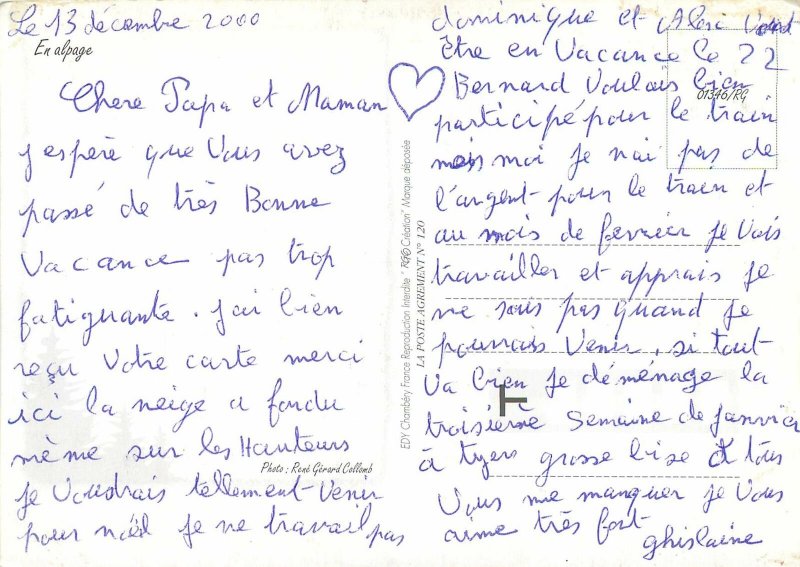 Le 13 décembre 2000
En alpage
Chere Papa et Maman
j espère que Vous avez
passé de très Bonne
Vacance pas trop
fatiguante. j'ai bien
reçu Votre carte merci
ici la neige a fondu
même sur les Hauteurs
je Voudrais tellement Venir
pour noël je ne travail pas
Photo : René Gérard Collomb
EDY Chambéry France Reproduction Interdite " RGG Création" Marque déposée
LA POSTE AGREMENT N° 120
01346/RG
dominique et Alexi Vont
être en Vacance le 22
Bernard Voulais bien
participé pour le train
mais moi je n'ai pas de
l'argent pour le train et
au mois de fevrier je Vais
travailler et apprais je
ne sais pas quand je
pourrais Venir, si tout
Va bien je déménage la
troisième semaine de janvier
à tyers grosse bise à tous
Vous me manquer je Vous
aime très fort
ghislaine